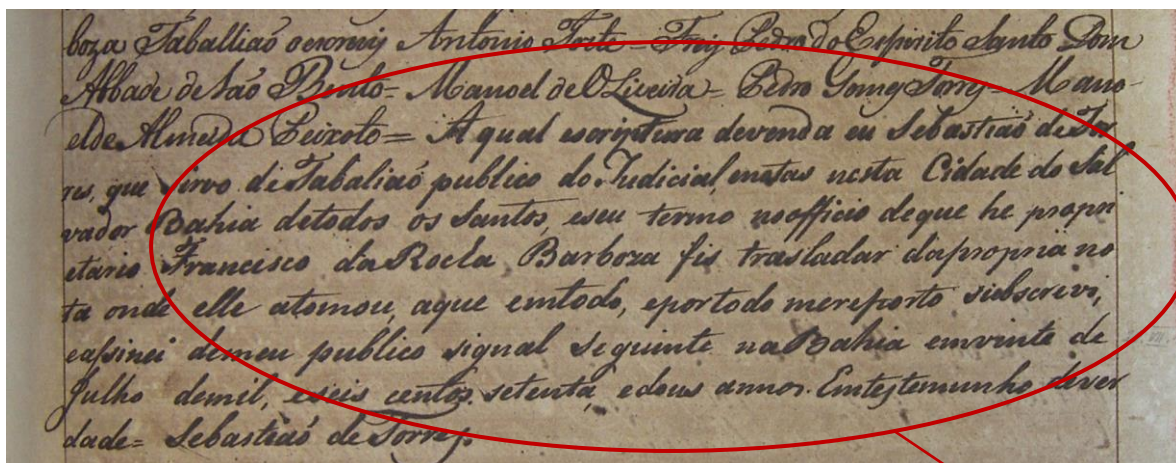 boza Taballiaó o escrevy Antonio Forte = Frey Pedro do Espirito Santo Dom
Abbade de São Bento = Manoel de OLiveira = Pedro Gomes Torres = Mano-
el de Almeida Peixoto = A qual escriptura devenda eu Sebastiaó de Tor
res, que sirvo de Tabaliaó publico do Judicial, enotas nesta Cidade do Sal
vador Bahia detodos os Santos, eseu termo no officio deque he propri
etario Francisco da Rocha Barboza fis trasladar dapropria no
ta onde elle atomou, aque emtodo, eportodo mereporto subscrevi,
eassinei demeu publico signal seguinte na Bahia emvinte de
Julho demil, eseis centos, setenta, edous annos. Emtestemunho dever
dade = Sebastiaó de Torres.